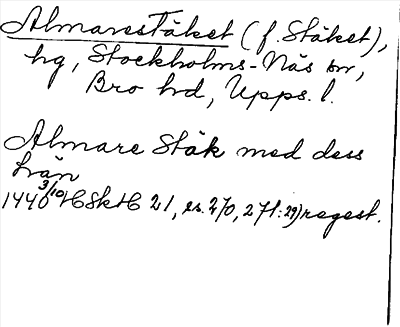 Almarestäket (f. Stäket),
hg, Stockholms-Näs sn,
Bro hd, Upps. l.
Almare Stäk med dess
trän
1440 3/10 HSkH 21, s. 270, 271: 29) regest.